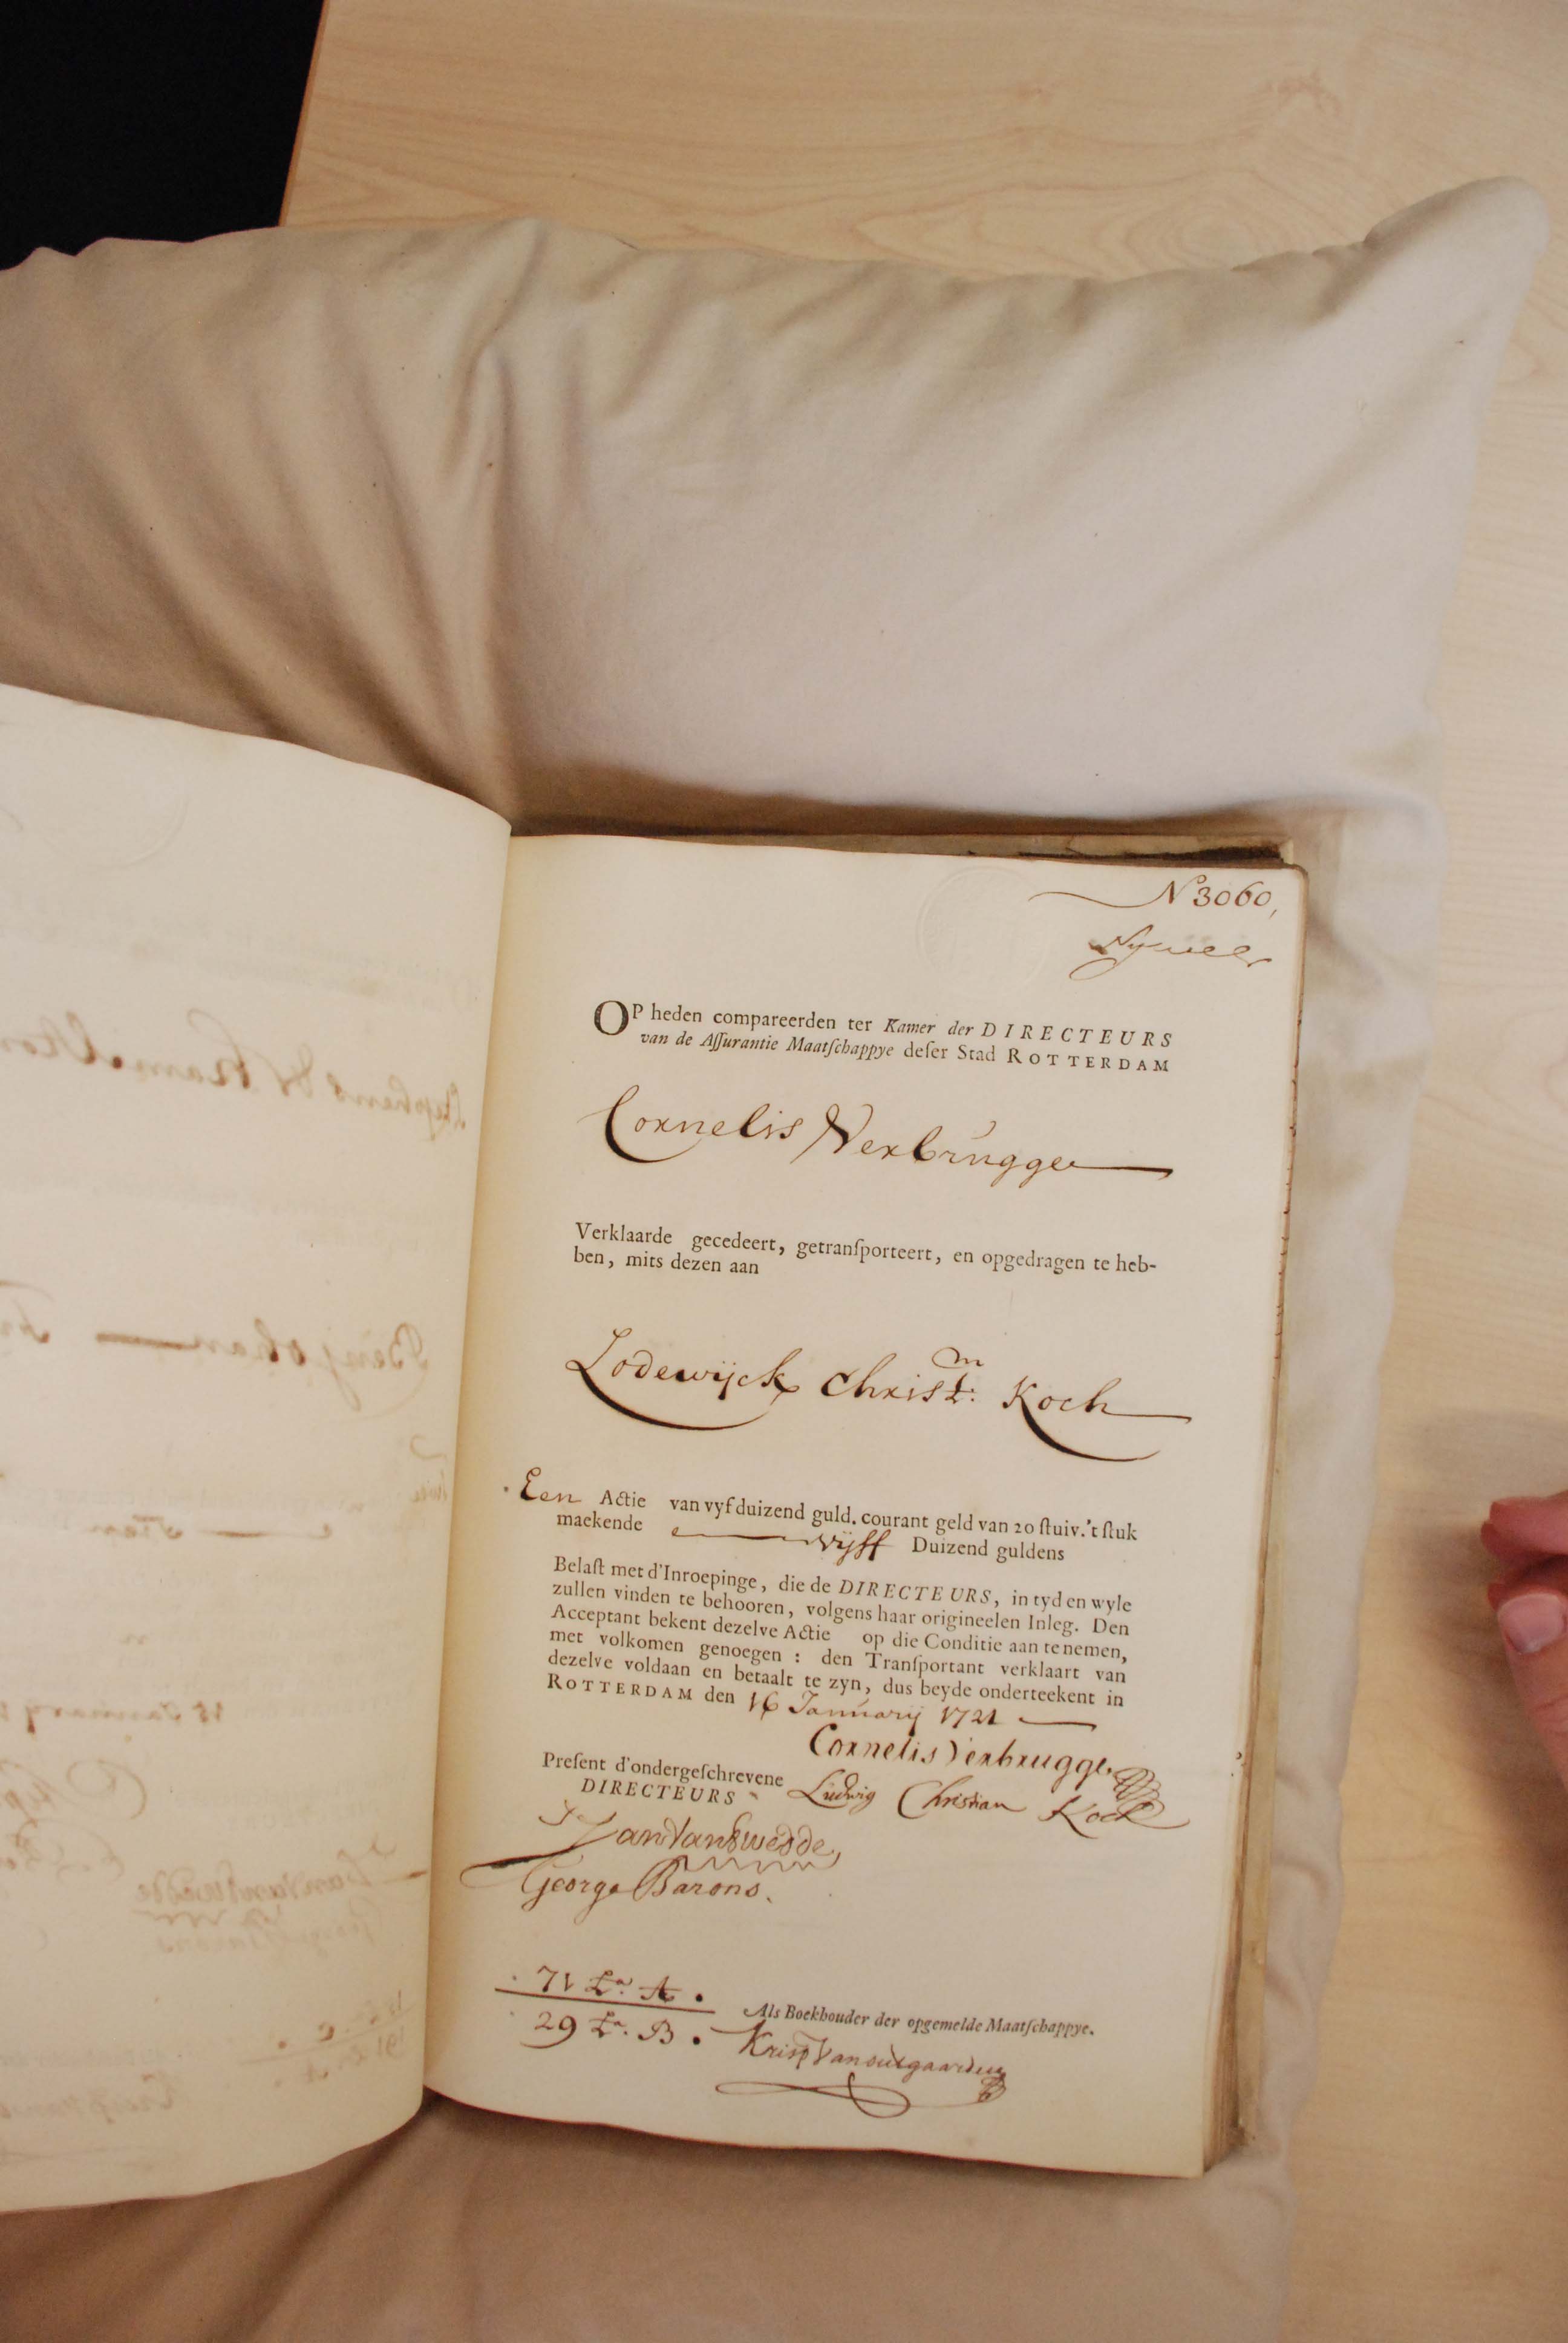 N 3060,
OP heden compareerden ter Kamer der DIRECTEURS
van de Aſſurantie Maatſchappye deſer Stad ROTTERDAM
Cornelis Verbrugge
Verklaarde gecedeert, getranſporteert, en opgedragen te heb-
ben, mits dezen aan
Lodewijck Christ:m Koch
Een Actie van vyf duizend guld. courant geld van 20 ſtuiv. 't ſtuk
maekende vijff Duizend guldens
Belaſt met d'Inroepinge, die de DIRECTEURS, in tyd en wyle
zullen vinden te behooren, volgens haar origineelen Inleg. Den
Acceptant bekent dezelve Actie op die Conditie aan te nemen,
met volkomen genoegen : den Tranſportant verklaart van
dezelve voldaan en betaalt te zyn, dus beyde onderteekent in
ROTTERDAM den 16 Januarij 1721
Cornelis Verbrugge
Preſent d'ondergeſchrevene
DIRECTEURS
Ludwig Christian Koch
George Barons.
71 La. A.
29 La. B.
Als Boekhouder der opgemelde Maatſchappye.